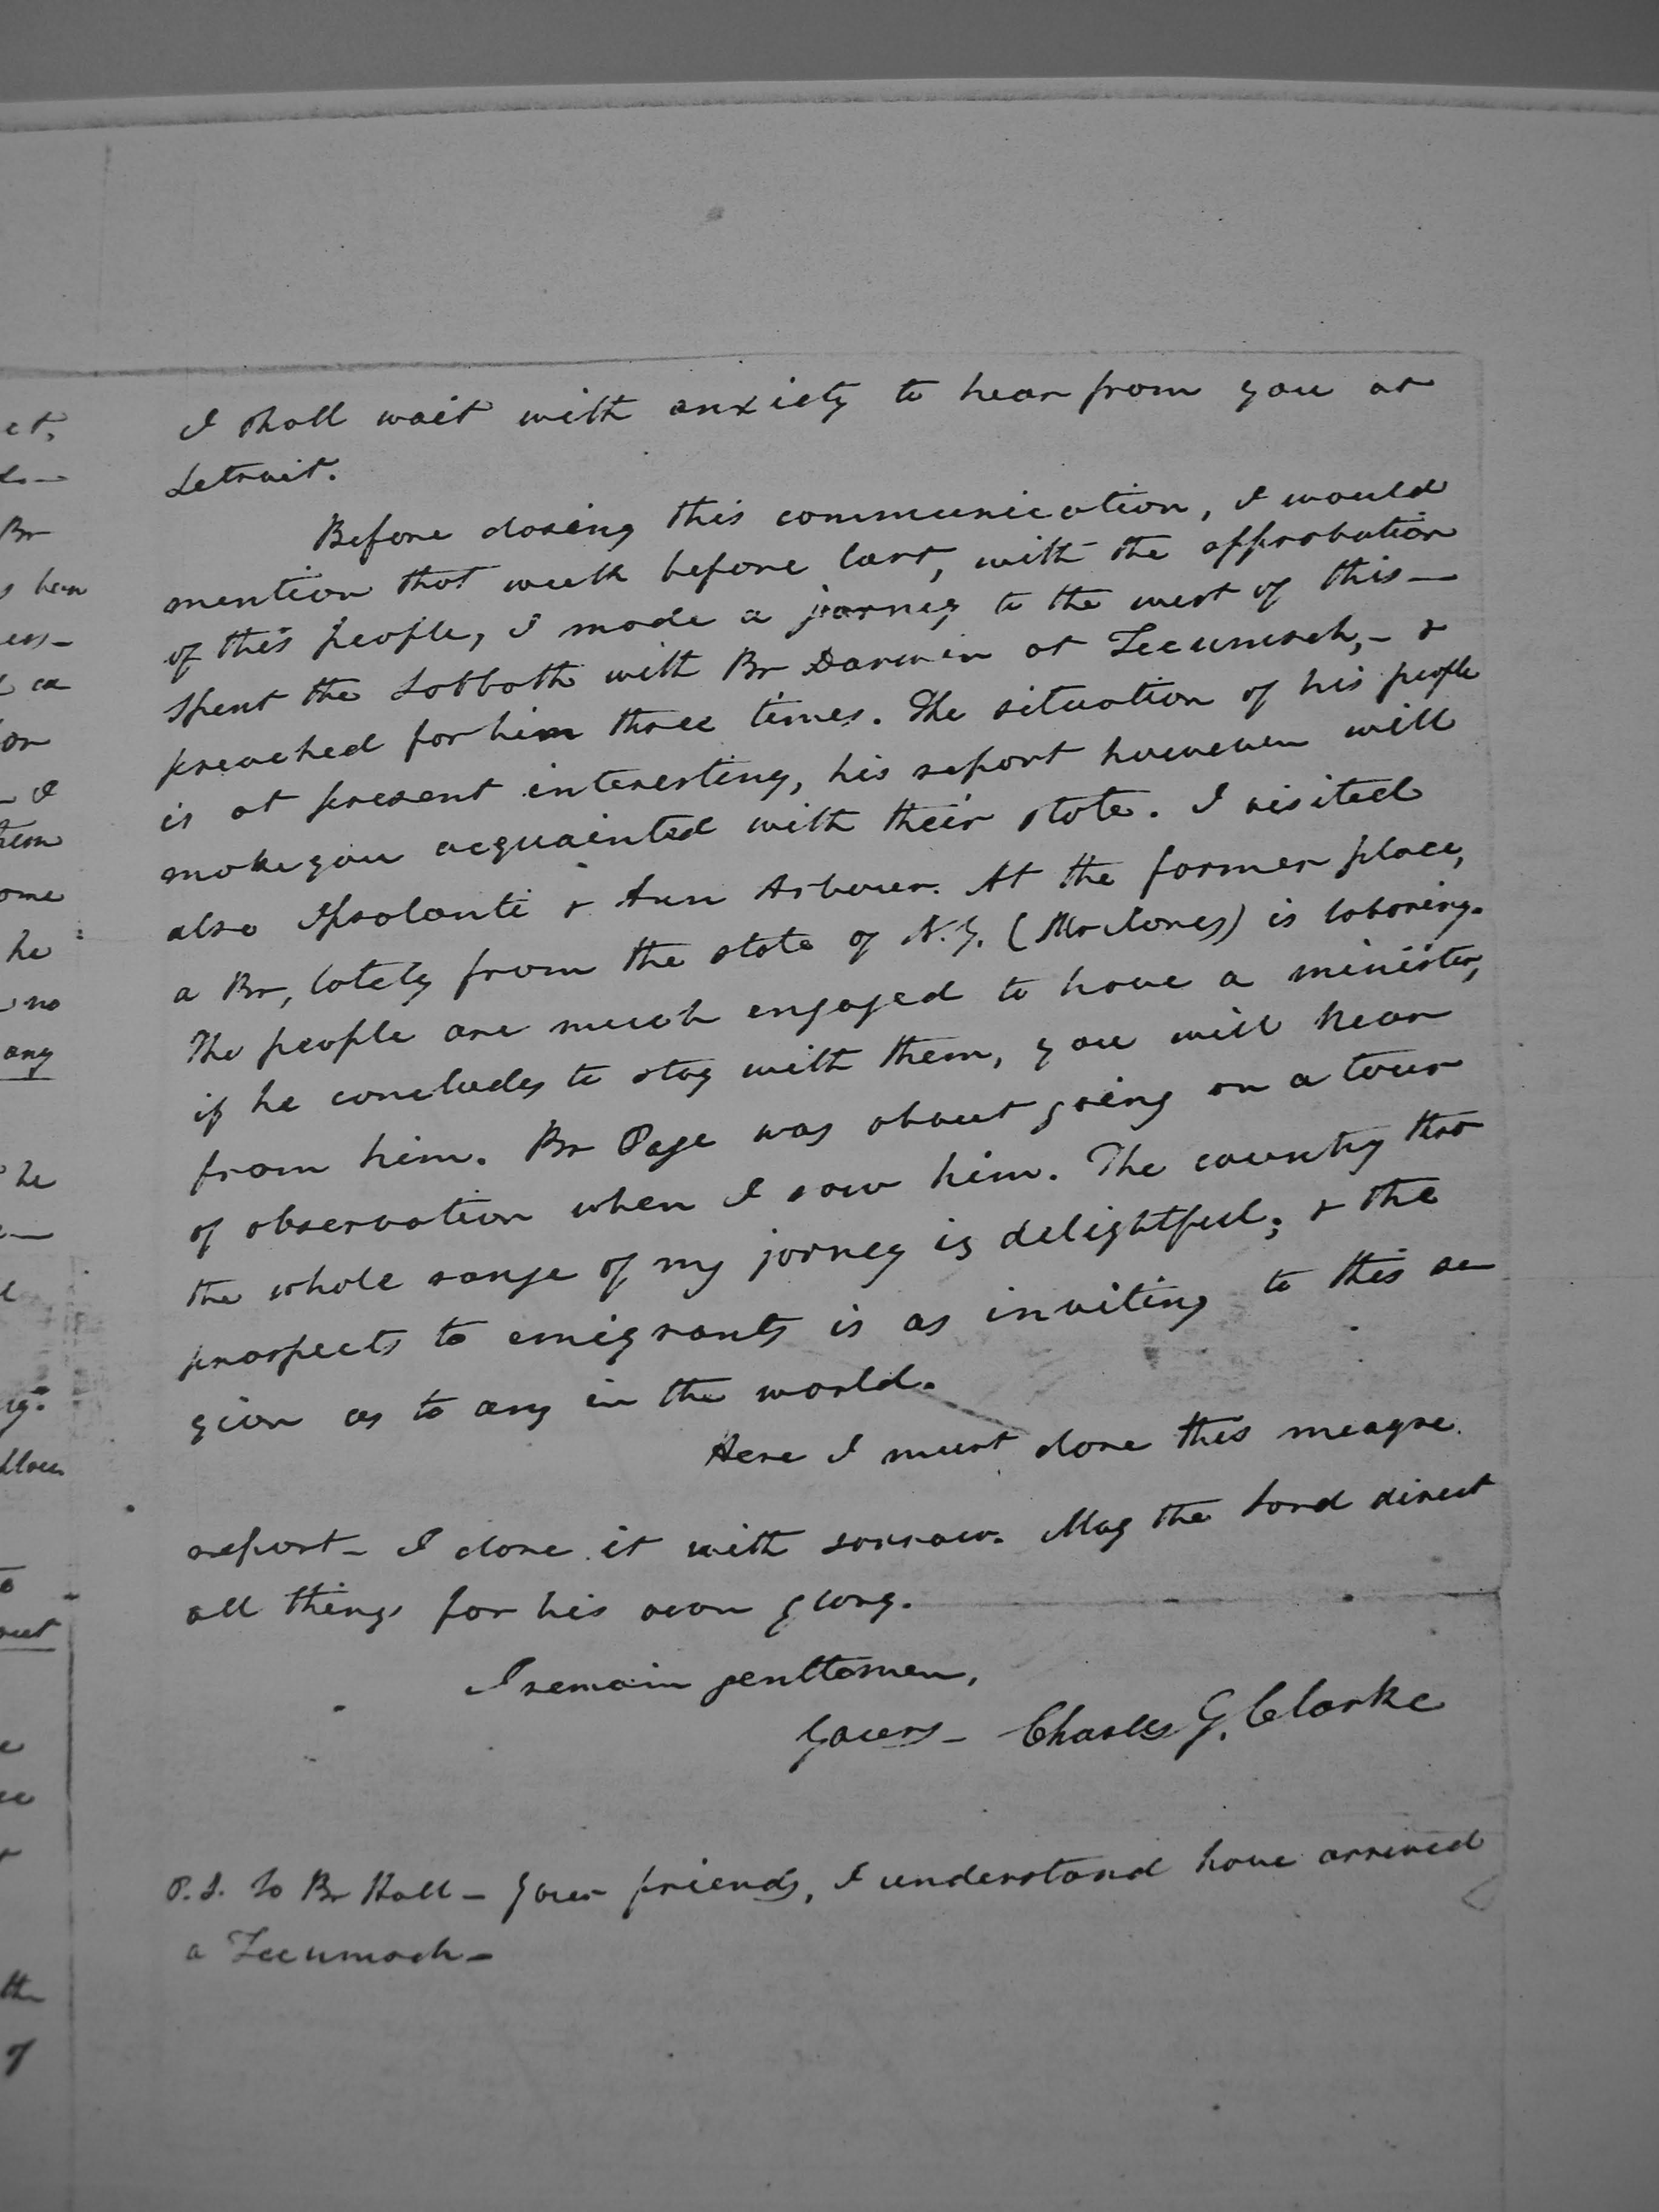 I shall wait with anxiety to hear from you at
Detroit.
Before closing this communication, I would
mention that week before last, with the approbation
of this people, I made a jorney to the west of this—
spent the Sabbath with Br Darwin at Tecumseh,- &
preached for him three times. The situation of his people
is at present interesting, his report however will
make you acquainted with their state. I visited
also Ypsolanti & Ann Arbour. At the former place,
a Br, lately from the state of N.Y. (Mr Jones) is laboring.
The people are much engaged to have a minister,
if he concludes to stay with them, you will hear
from him. Br Page was about going on a tour
of observation when I saw him. The country thro
the whole range of my jorney is delightful; & the
prospects to emigrants is as inviting to this re
gion as to any in the world.
Here I must close this meagre
report- I close it with sorrow. May the Lord direct
all things for his own glory.
I remain gentlemen,
Yours- Charles G. Clarke
P.S. To Br Hall- Your friends, I understand have arrived
a Tecumseh-
et,
Br
been
ess-
or
- I
ome
he
no
any
he
th
of